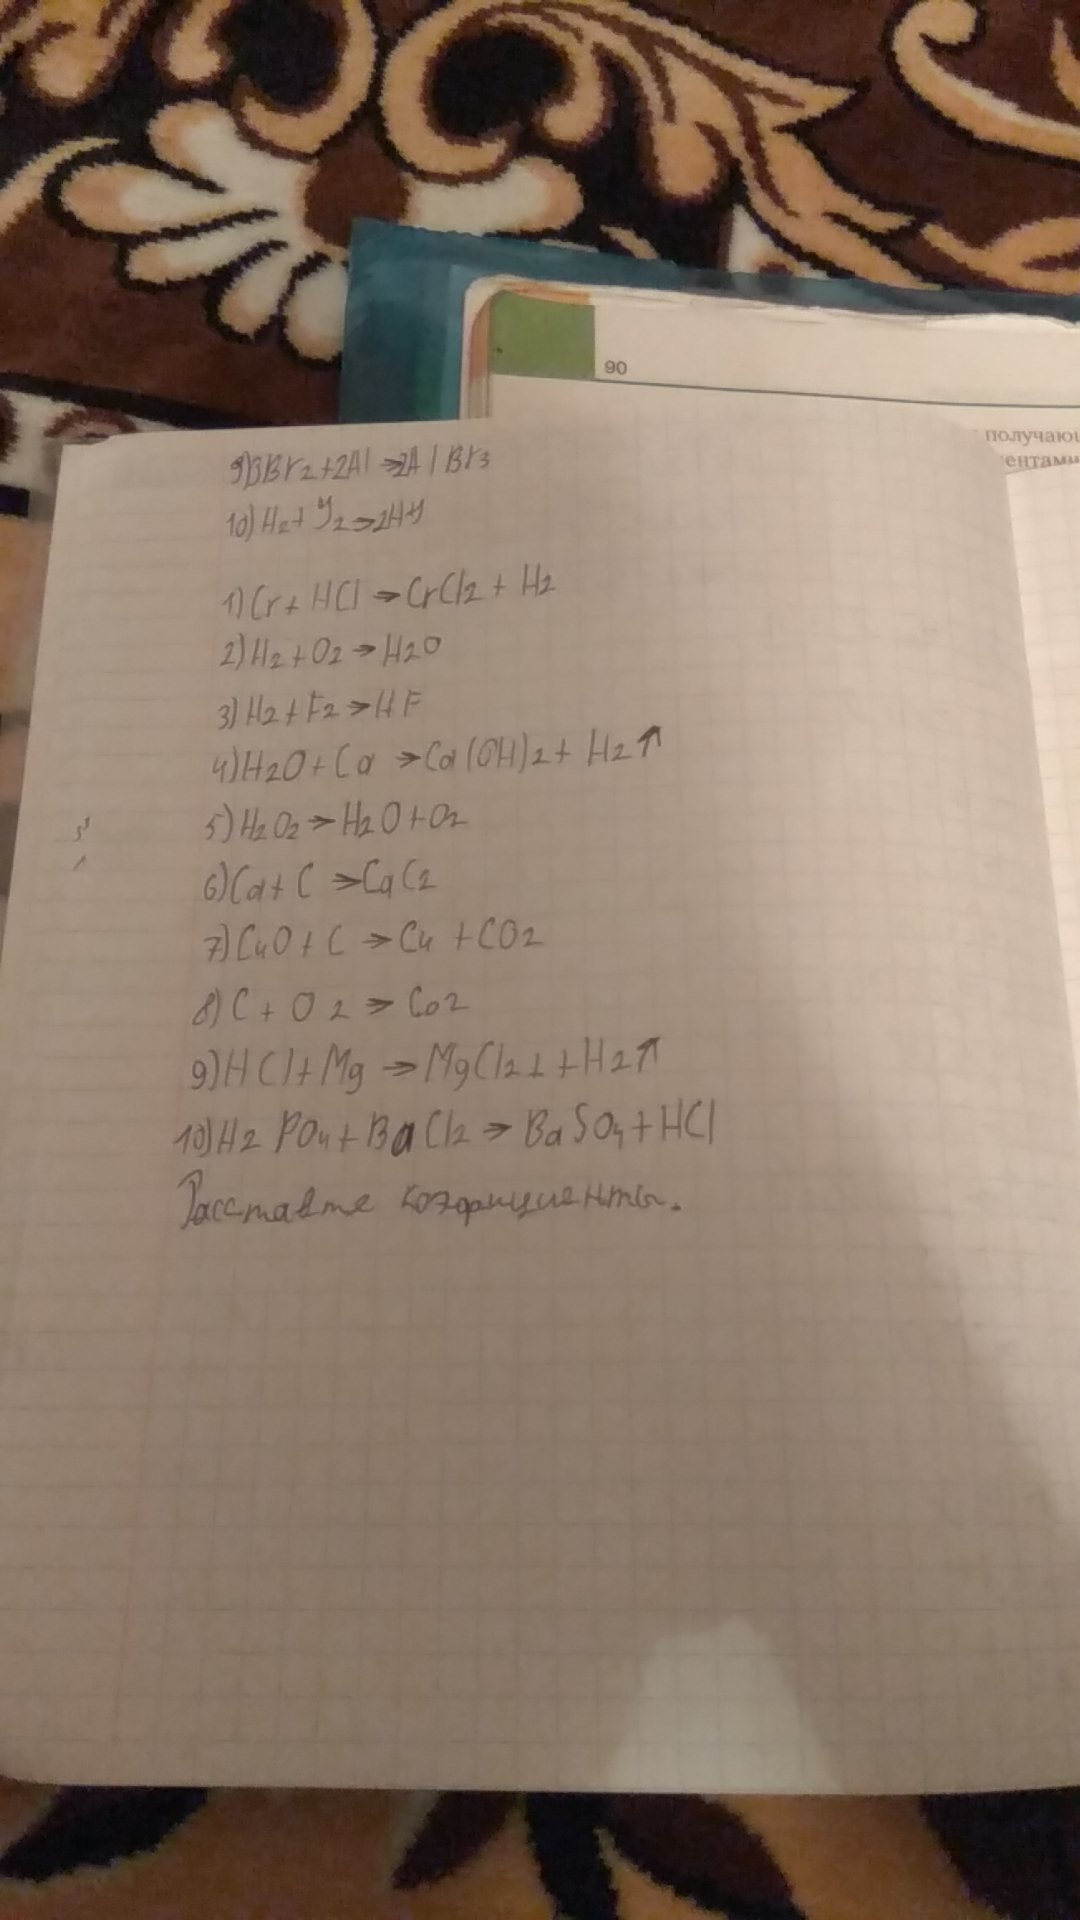 90
получаю
ентами
9)3Br2+2Al→2AlBr3
10)H2+У2→2HУ
1)Cr+HCl→CrCl2+H2
2)H2+O2→H2O
3)H2+F2→HF
4)H2O+Ca→Ca(OH)2+H2↑
5)H2O2→H2O+O2
6)Ca+C→CaC2
7)CuO+C→Cu+CO2
8)C+O2→Co2
9)HCl+Mg→MgCl2++H2↑
10)H2PO4+BaCl2→BaSO4+HCl
Расставте коэфициенты.